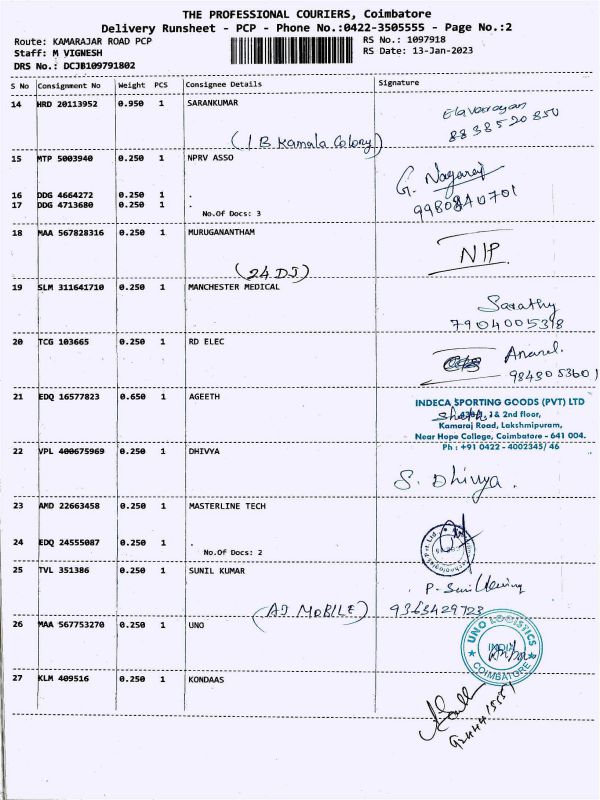 THE PROFESSIONAL COURIERS, Coimbatore
Delivery Runsheet - PCP - Phone No.:0422-3505555 - Page No.:2
Route: KAMARAJAR ROAD PCP RS No.: 1097918
Staff: M VIGNESH RS Date: 13-Jan-2023
DRS No.: DCJB109791802
S No Consignment No Weight PCS Consignee Details Signature
14 HRD 20113952 0.950 1 SARANKUMAR
8838520850
(1 B Kamala Colony)
15 MTP 5003940 0.250 1 NPRV ASSO
G. Nagaraj
16 DDG 4664272 0.250 1 .
17 DDG 4713680 0.250 1 .
No.Of Docs: 3
18 MAA 567828316 0.250 1 MURUGANANTHAM
N/P.
(24 DJ)
19 SLM 311641710 0.250 1 MANCHESTER MEDICAL
Sarathy
7904005318
20 TCG 103665 0.250 1 RD ELEC
Anand.
9843053601
21 EDQ 16577823 0.650 1 AGEETH
INDECA SPORTING GOODS (PVT) LTD
1& 2nd floor,
Kamaraj Road, Lakshmipuram,
Near Hope College, Coimbatore - 641 004.
Ph : +91 0422 - 4002345/ 46
22 VPL 400675969 0.250 1 DHIVYA
S. Dhivya.
23 AMD 22663458 0.250 1 MASTERLINE TECH
24 EDQ 24555087 0.250 1 .
No.Of Docs: 2
25 TVL 351386 0.250 1 SUNIL KUMAR
P. Sunil
(AJ MOBILE) 9363429723
26 MAA 567753270 0.250 1 UNO
UNO LOGISTICS
INDIA
COIMBATORE
27 KLM 409516 0.250 1 KONDAAS